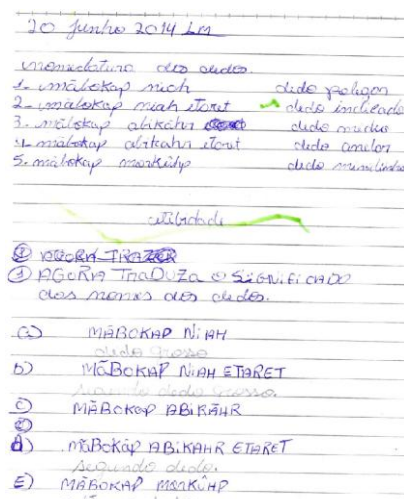 20 Junho 2014 LM
nomeclatura dos dedos.
1- mãbokap niah dedo polegar
2- mãbokap niah etaret dedo indicado
3. mãbokap abikahr dedo medio
4- mãbokap abikahr etaret dedo anelar
5. mãbokap markûhp dedo
atibidade
② AGORA TRAZER
① AGORA TRADUZA O SIGNIFICADO
dos nomes dos dedos.
a) MÃBOKAP NiAH
dedo Grosso
b) MÃBOKAP NiAH ETARET
segundo dedo grosso.
C) MÃBOKAP ABIKÃHR
D) MÃBOKÃP ABIKAHR ETARET
Segundo dedo.
E) MÃBOKAP MARKÛHP